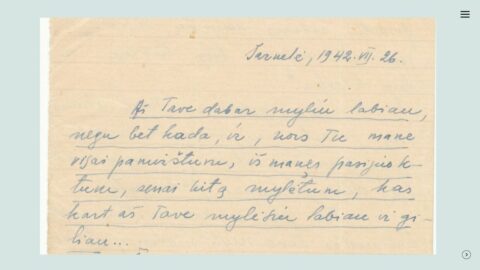 Tarnelė, 1942. VII. 26.
Aš Tave dabar myliu labiau,
negu bet kada, ir, nors Tu mane
visai pamirštum, iš manęs pasijuok-
tum, senai kitą mylėtum, kas
kart aš Tave mylėsiu labiau ir gi-
liau...